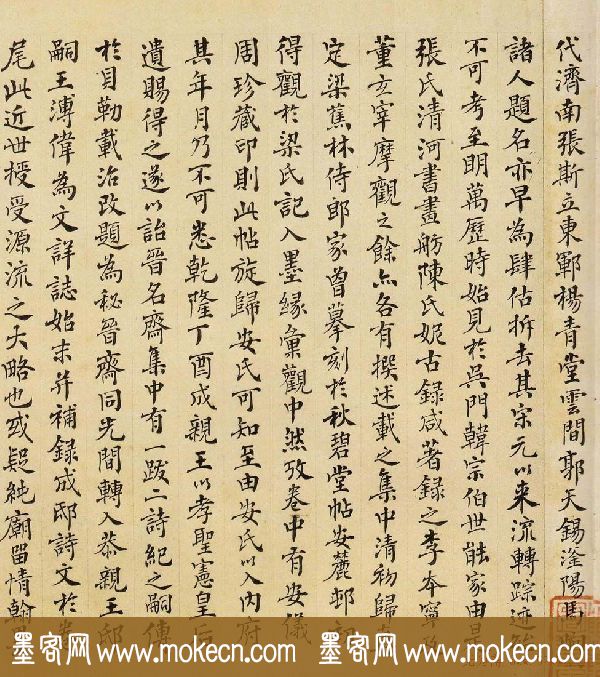 代濟南張斯立東鄆楊青堂雲間郭天錫滏陽馬
諸人題名亦早為肆估拆去其宋元以來流轉踪迹殆
不可考至明萬歷時始見於吳門韓宗伯世能家由是
張氏清河書畫舫陳氏妮古錄咸著錄之李本寧及
董玄宰摩觀之餘亦各有撰述載之集中清初歸真
定梁蕉林侍郎家曾摹刻於秋碧堂帖安麓邨初
得觀於梁氏記入墨緣彙觀中然攷卷中有安儀
周珍藏印則此帖旋歸安氏可知至由安氏以入內府
其年月乃不可悉乾隆丁酉成親王以孝聖憲皇后
遺賜得之遂以詒晉名齋集中有一跋二詩紀之嗣傳
於貝勒載治改題為秘晉齋同光間轉入恭親王邸
嗣王溥偉為文詳誌始末并補錄成邸詩文於卷
尾此近世授受源流之大略也或疑純廟留情翰
墨客网 www.mokecn.com 墨客网 www.mokecn.com